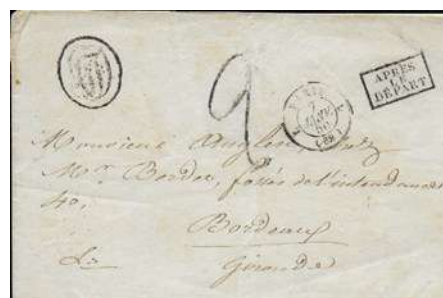 2
PARIS
7
JANV.
APRÈS
LE
DÉPART
Monsieur
Mr. Bordes, fossés de l'intendance
40.
Bordeaux
Gironde